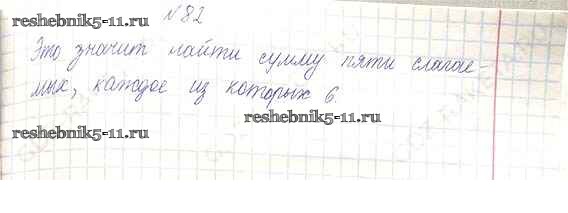 №82
reshebnik5-11.ru
reshebnik5-11.ru
Это значит найти сумму пяти слагае-
мых, каждое из которых 6.
reshebnik5-11.ru
reshebnik5-11.ru